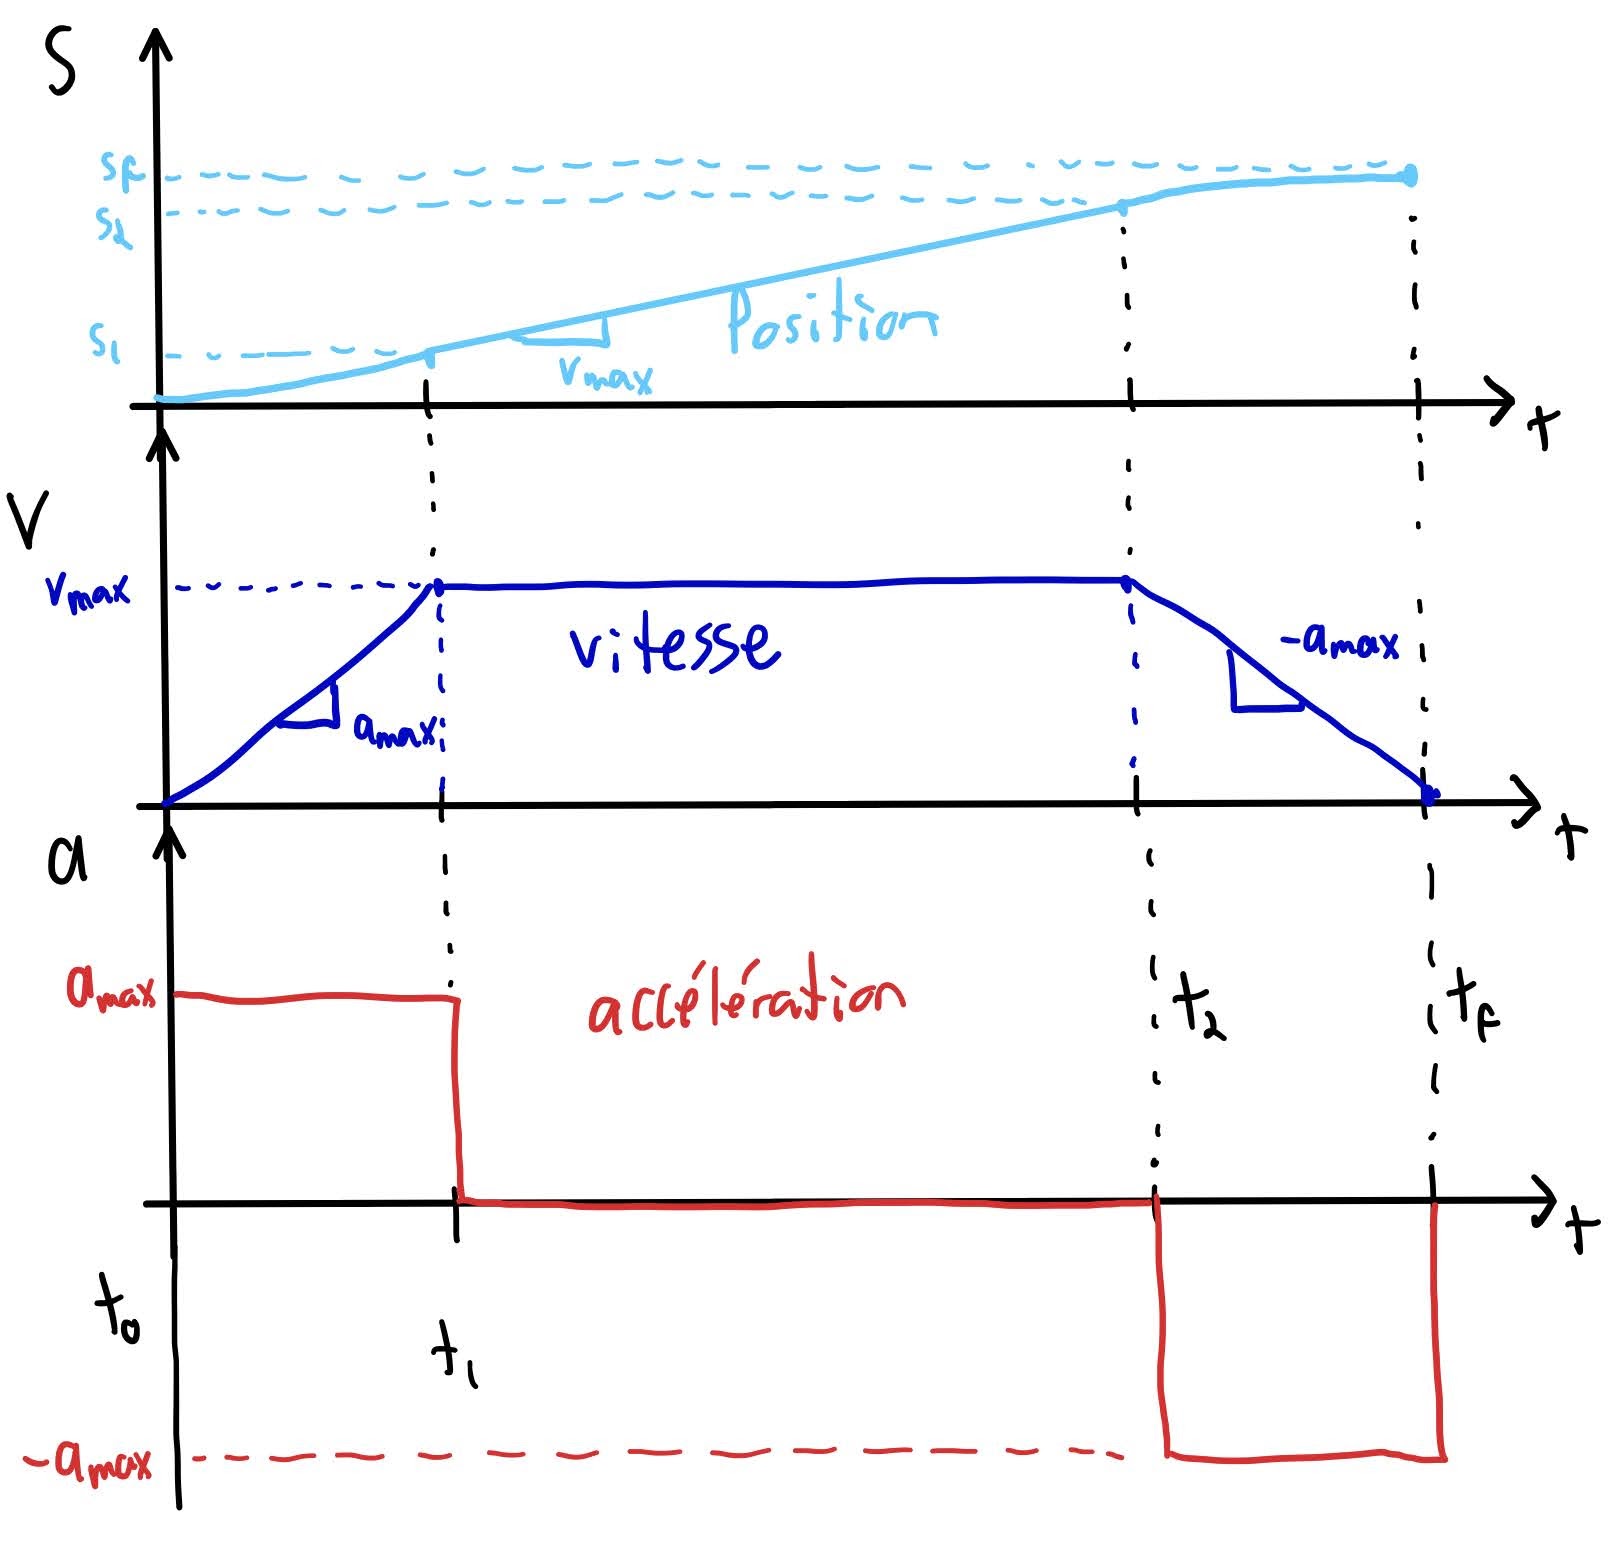 S
sf
s2
s1
Position
vmax
t
V
vmax
vitesse
amax
-amax
t
a
amax
accélération
t2
tf
t
t0
t1
-amax